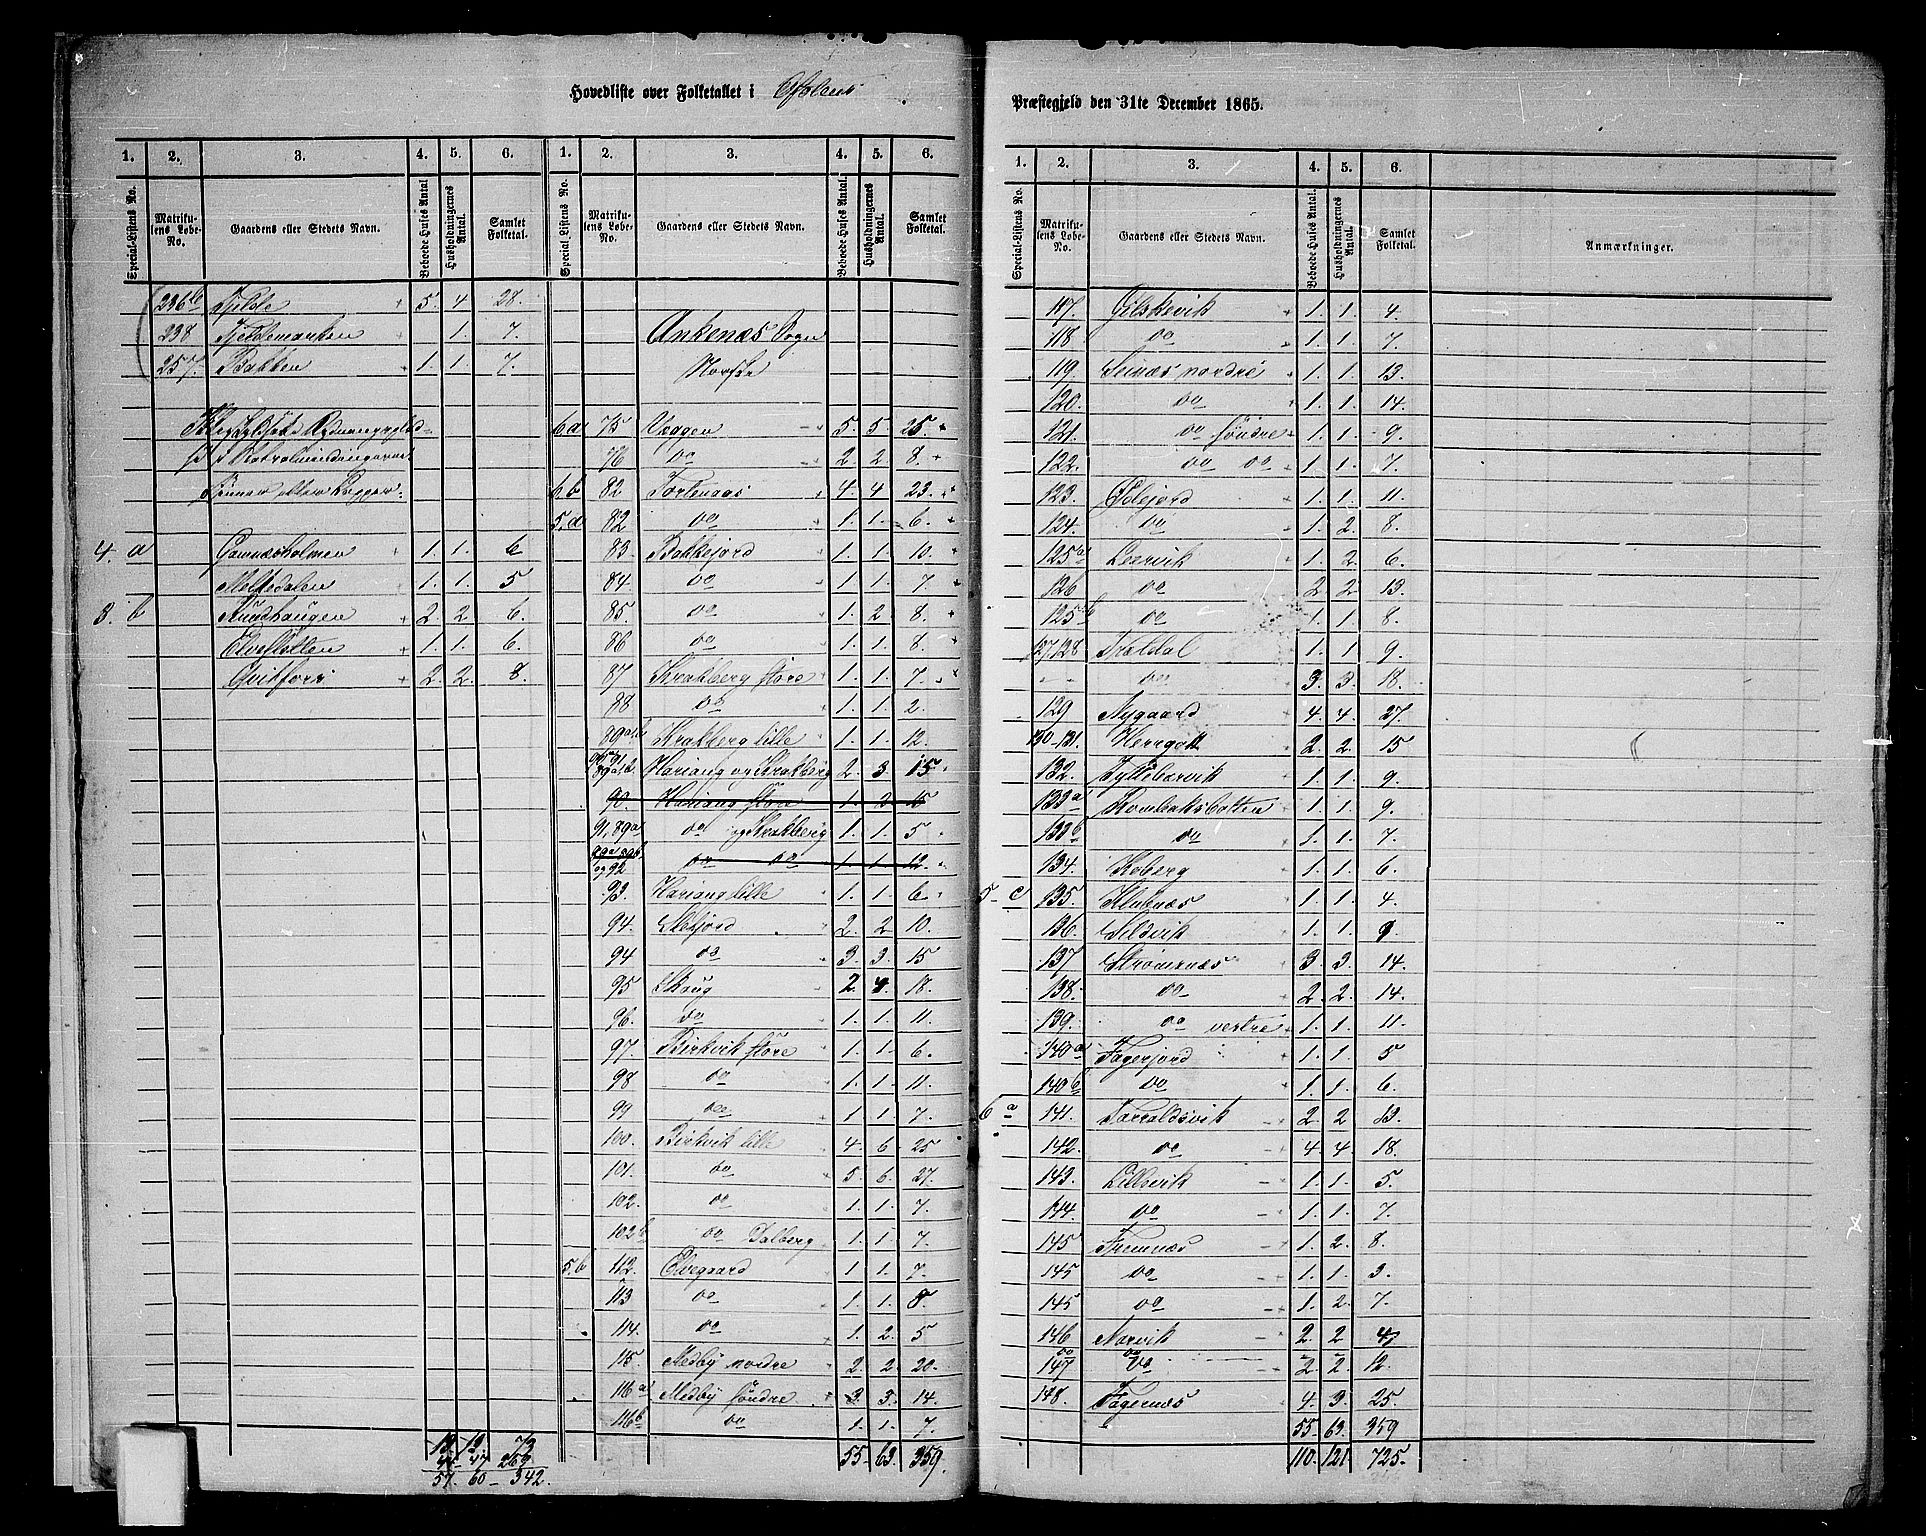 Hovedliste over Folketallet i Ofoten
Præstegjeld den 31te December 1865.
1. 2. 3. 4. 5. 6. 1. 2. 3. 4. 5. 6.
Special-Listens No. Matrikulens Løbe-No. Gaardens eller Stedets Navn. Beboede Huses Antal Husholdningernes Antal. Samlet Folketal. Special Listens No. Matrikulens Løbe-No. Gaardens eller Stedets Navn. Beboede Huses Antal. Husholdningernes Antal. Samlet Folketal.
236b Fjelde 5. 4 28.
238 Fjeldemarken 1. 7.
257. Bakken 1. 1. 7.
4. a
Gamnesholmen 1. 1. 6
Melkedalen 1. 1. 5
8. b Kundhaugen 2. 2. 6.
Elvesletten 1. 1. 6.
Qvitfors 2. 2. 8.
13. 13. 73
44 47 269
57. 60 342.
Ankenæs Sogn
Norske
6a 75 Væggen 5. 5. 25.
76 do 2. 2. 8.
6b 82 Tortenaas 4. 4 23.
5. a 82 do 1. 1. 6.
83. Bakkejord 1. 1. 10.
84. do 1. 1. 7.
85. do 1. 2 8.
86 do 1. 1. 8.
87 Krakberg store 1. 1. 7.
88 do 1. 1. 2.
89a.b Krakberg lille 1. 1. 12.
Hariang og Krakberg 2. 3. 15.
90. Hariang store 1. 3 15
91, 89a do og Krakberg 1. 1. 5
og 92 do do 1. 1. 12.
93. Hariang lille 1. 1. 6
94. Skjord 2. 2 10.
94 do 3. 3. 15
95 Skoug 2. 4. 18.
96. do 1. 1. 11.
97. Birkvik store 1. 1. 6.
98 do 1. 1. 11.
99 do 1. 1. 7.
100. Birkvik lille 4. 6. 25
101. do 5. 6. 27.
102. do 1. 1. 7.
102b do Dalberg 1. 1. 7.
5. b 112. Elvegaard 1. 1. 7.
113 do 1. 1. 8.
114. do 1. 2. 5
115. Medby nordre 2. 2. 20.
116a Medby søndre 3. 3. 14.
116b do 1. 1. 7.
55 63. 359.
1. 2. 3. 4. 5. 6.
Special-Listens No. Matrikulens Løbe-No. Gaardens eller Stedets Navn. Beboede Huses Antal. Husholdningernes Antal. Samlet Folketal. Anmærkninger.
117. Gilskevik 1. 1. 4.
118. do 1. 1. 7.
119. Seinæs nordre 1. 1. 13.
120. do 1. 1. 14.
121. do søndre 1. 1. 9.
122. do do 1. 1. 7.
123. 1. 1. 11.
124. do 1. 2. 8.
125a Leervik 1. 2. 6.
126 do 2 2 13.
125b do 1. 1. 8.
127.128 Traldal 1. 1 9.
do 3. 3. 18.
129 Nygaard 4. 4. 27.
130-131. Herrgott 2. 2. 15
132. Tyttebærvik 1. 1. 9.
133a Rombaksbotten 1. 1. 9.
133b do 1. 1. 7.
134. Koberg 1. 1. 6.
5 c 135. Klubnæs 1. 1. 4.
136. Sildvik 1. 1. 9.
137 Strømsnæs 3. 3. 14.
138. do 2. 2. 14.
139. do vestre 1. 1. 11.
140a Fagerjord 1. 1. 5
140b do 1. 1. 6.
6 a 141. Taraldsvik 2. 2 13.
142. do 4. 4. 18.
143. Lillevik 1. 1. 5.
144. do 1. 1. 7.
145. Fremnæs 1. 2. 8.
145 do 1. 1. 3.
145 do 1. 2. 7.
146 Narvik 2. 2 4
147 do 2. 2. 12.
148. Fagernæs 4. 3. 25.
55. 63. 359
110. 121 725.